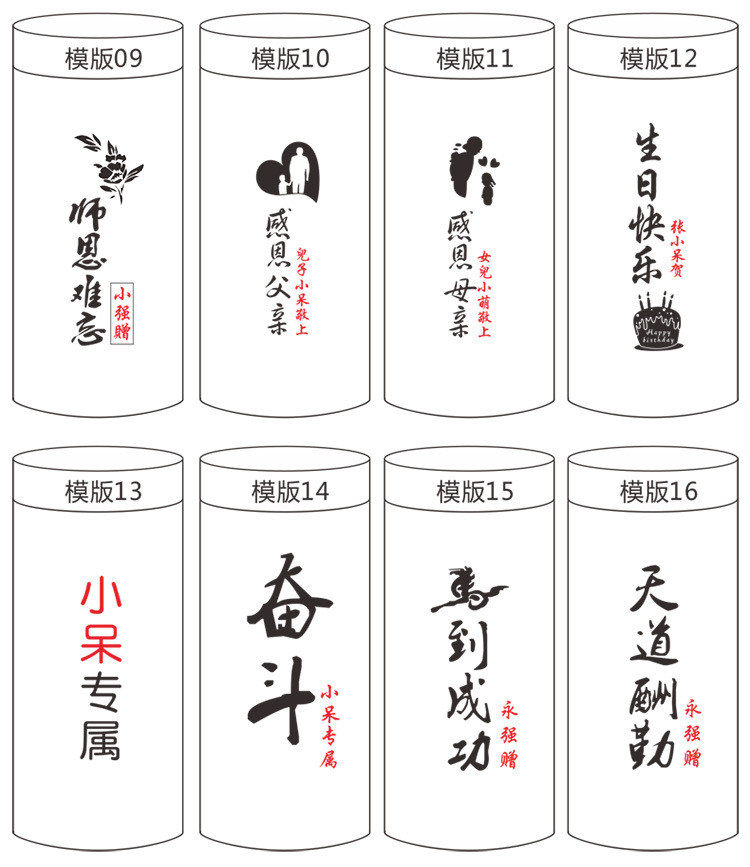 模版09
师恩难忘
小强赠
模版10
感恩父亲
兒子小呆敬上
模版11
感恩母亲
女兒小萌敬上
模版12
生日快乐
张小呆贺
Happy
birthday
模版13
小呆专属
模版14
奋斗
小呆专属
模版15
馬到成功
永强赠
模版16
天道酬勤
永强赠